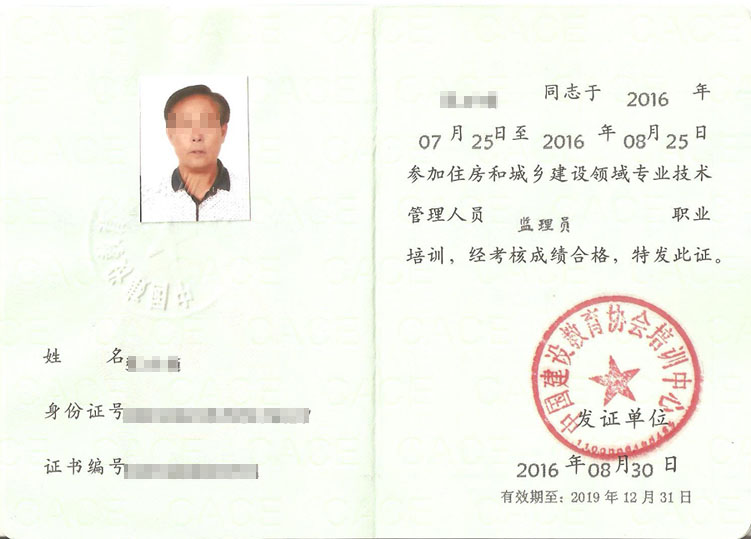 姓 名
身份证号
证书编号
同志于 2016 年
07 月 25 日至 2016 年 08 月 25 日
参加住房和城乡建设领域专业技术
管理人员 监理员 职业
培训，经考核成绩合格，特发此证。
中国建设教育协会培训中心
发证单位
2016 年 08 月 30 日
有效期至：2019 年 12 月 31 日